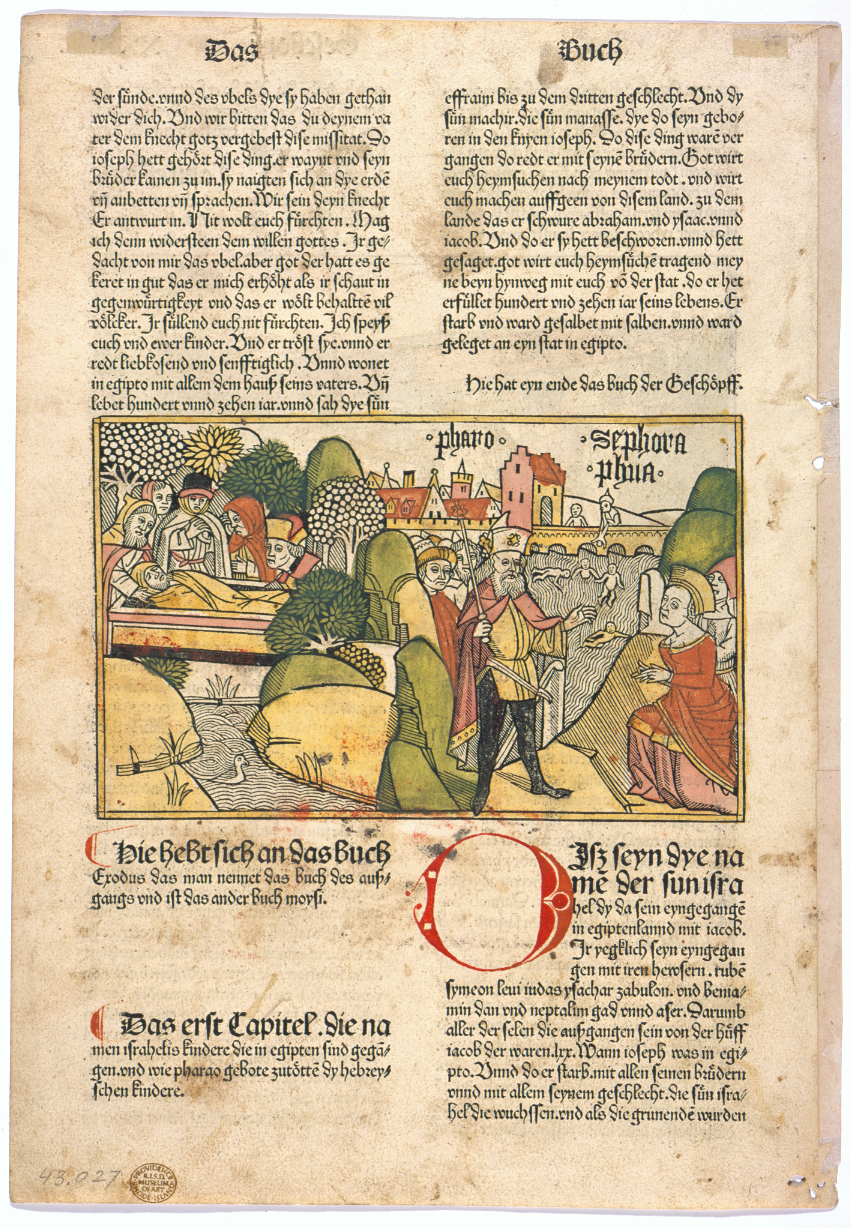 Das
Buch
der sünde.vnnd des vbels dye sy haben gethan
wider dich. Vnd wir bitten das du deynem va
ter dem knecht gotz vergebest dise missitat. Do
ioseph hett gehört dise ding.er waynt vnd seyn
brüder kamen zu im.sy naigten sich an dye erdē
vn̄ anbetten vn̄ sprachen. Wir sein deyn knecht
Er antwurt in. Nit wolt euch fürchten. Mag
ich denn widersteen dem willen gottes. Ir ge⸗
dacht von mir das vbel.aber got der hatt es ge
keret in gut das er mich erhöht als ir schaut in
gegenwürtigkeyt vnd das er wölt behaltten vil
völcker. Ir süllend euch nit fürchten. Ich speyß
euch vnd ewer kinder. Vnd er tröst sye.vnnd er
redt liebkosend vnd senfftiglich. Vnnd wonet
in egipto mit allem dem hauß seins vaters. Vn̄
lebet hundert vnnd zehen iar.vnnd sah dye sün
effraim bis zu dem dritten geschlecht. Vnd dy
sün machir.die sün manasse.dye do seyn gebo⸗
ren in den knyen ioseph. Do dise ding warē ver
gangen do redt er mit seynē brüdern. Got wirt
euch heymsuchen nach meynem todt. vnd wirt
euch machen auffgeen von disem land. zu dem
lande das er schwure abraham.vnd ysaac.vnnd
iacob. Vnd do er sy hett beschworen.vnnd hett
gesaget.got wirt euch heymsüchē tragend mey
ne beyn hynweg mit euch vō der stat .do er het
erfüllet hundert vnd zehen iar seins lebens. Er
starb vnd ward gesalbet mit salben.vnnd ward
geleget an eyn stat in egipto.
Hie hat eyn ende das buch der Geschöpff.
·pharo·
·Sephora
·phua·
Hie hebt sich an das buch
Exodus das man nennet das buch des auß⸗
gangs vnd ist das ander buch moysi.
Das erst Capitel.die na
men israhelis kindere die in egipten sind gegā⸗
gen.vnd wie pharao gebote zutöttē dy hebrey⸗
schen kindere.
Disz seyn dye na
mē der sun isra
hel dy da sein eyngegangē
in egiptenlannd mit iacob.
Ir yegklich seyn eyngegan
gen mit iren hewsern. rubē
symeon leui iudas ysachar zabulon. vnd benia⸗
min dan vnd neptalim gad vnnd aser. Darumb
aller der selen die außgangen sein von der hüff
iacob der waren.lxx. Wann ioseph was in egi⸗
pto. Vnnd do er starb.mit allen seinen brüdern
vnnd mit allem seynem geschlecht.die sün isra⸗
hel die wuchssen.vnd als die grunendē wurden
43.027
PROVIDENCE
R.I.S.D.
MUSEUM
OF ART
RHODE-ISLAND